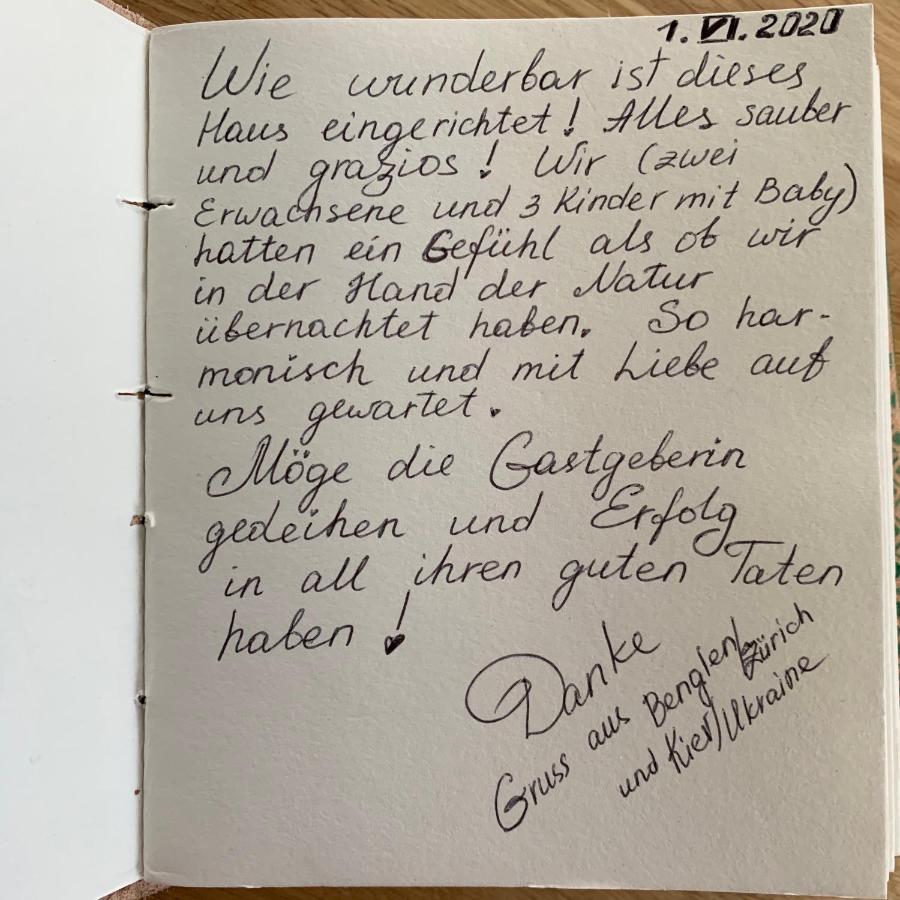 1. VI. 2020
Wie wunderbar ist dieses
Haus eingerichtet! Alles sauber
und grazios! Wir (zwei
Erwachsene und 3 Kinder mit Baby)
hatten ein Gefühl als ob wir
in der Hand der Natur
übernachtet haben. So har-
monisch und mit Liebe auf
uns gewartet.
Möge die Gastgeberin
gedeihen und Erfolg
in all ihren guten Taten
haben!
Danke
Gruss aus Benglen/Zürich
und Kiev/Ukraine